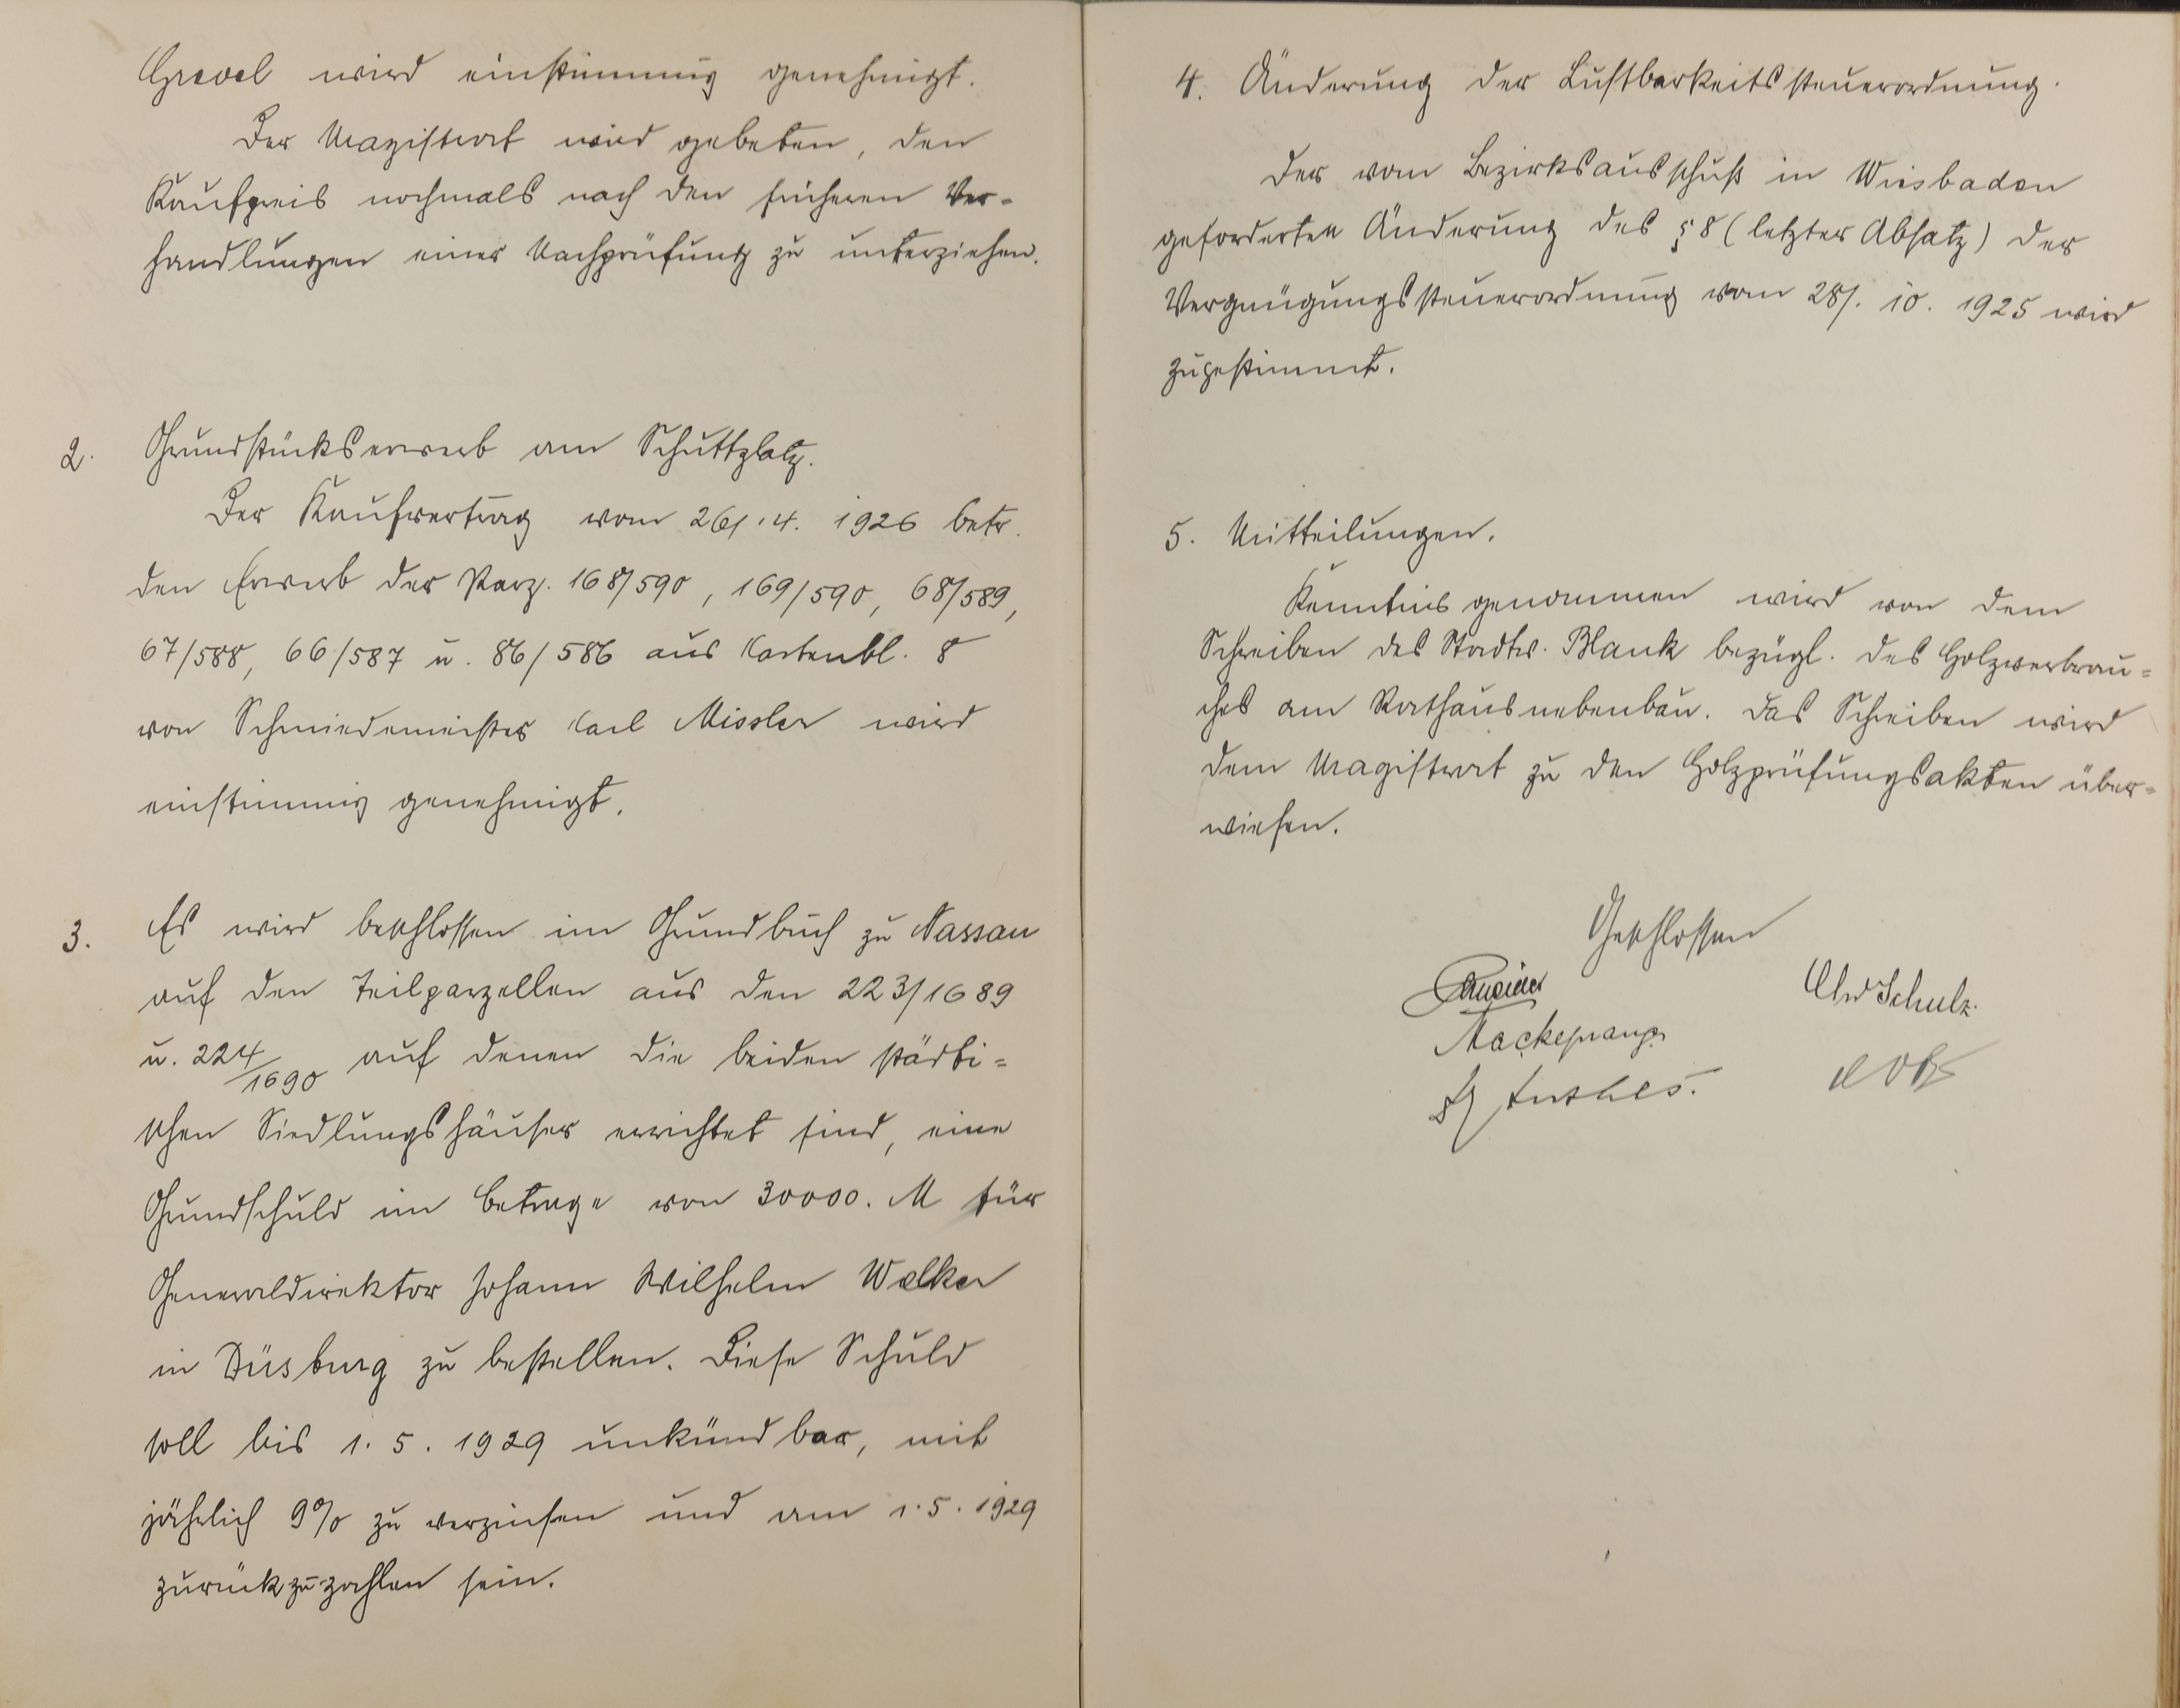 Grevel wird einstimmig genehmigt.
Der Magistrat wird gebeten, den
Kaufpreis nochmals nach den früheren Ver-
handlungen einer Nachprüfung zu unterziehen.
2. Grundstückserwerb am Schuttplatz.
Der Kaufvertrag vom 26/.4. 1926 betr.
den Erwerb der Parz. 168/590, 169/590, 68/589,
67/588, 66/587 u. 86/586 aus Kartenbl. 8
von Schmiedemeister Karl Missler wird
einstimmig genehmigt.
3. Es wird beschlossen im Grundbuch zu Nassau
auf den Teilparzellen aus den 223/1689
u. 224/1690 auf denen die beiden städti-
schen Siedlungshäuser errichtet sind, eine
Grundschuld im Betrage von 30000. M für
Generaldirektor Johann Wilhelm Welker
in Düsburg zu bestellen. Diese Schuld
soll bis 1. 5. 1929 unkündbar, mit
jährlich 9% zu verzinsen und am 1.5.1929
zurückzuzahlen sein.
4. Änderung der Lustbarkeitssteuerordnung.
Der vom Bezirksausschuß in Wiesbaden
geforderten Änderung des § 8 (letzter Absatz) der
Vergnügungssteuerordnung vom 28/. 10. 1925 wird
zugestimmt.
5. Mitteilungen.
Kenntnis genommen wird von dem
Schreiben des Stadtv. Blank bezügl. des Holzverbrau-
ches am Rathausnebenbau. Das Schreiben wird
dem Magistrat zu den Holzprüfungsakten über-
wiesen.
Geschlossen
Chr Schulz.
Mackeprang